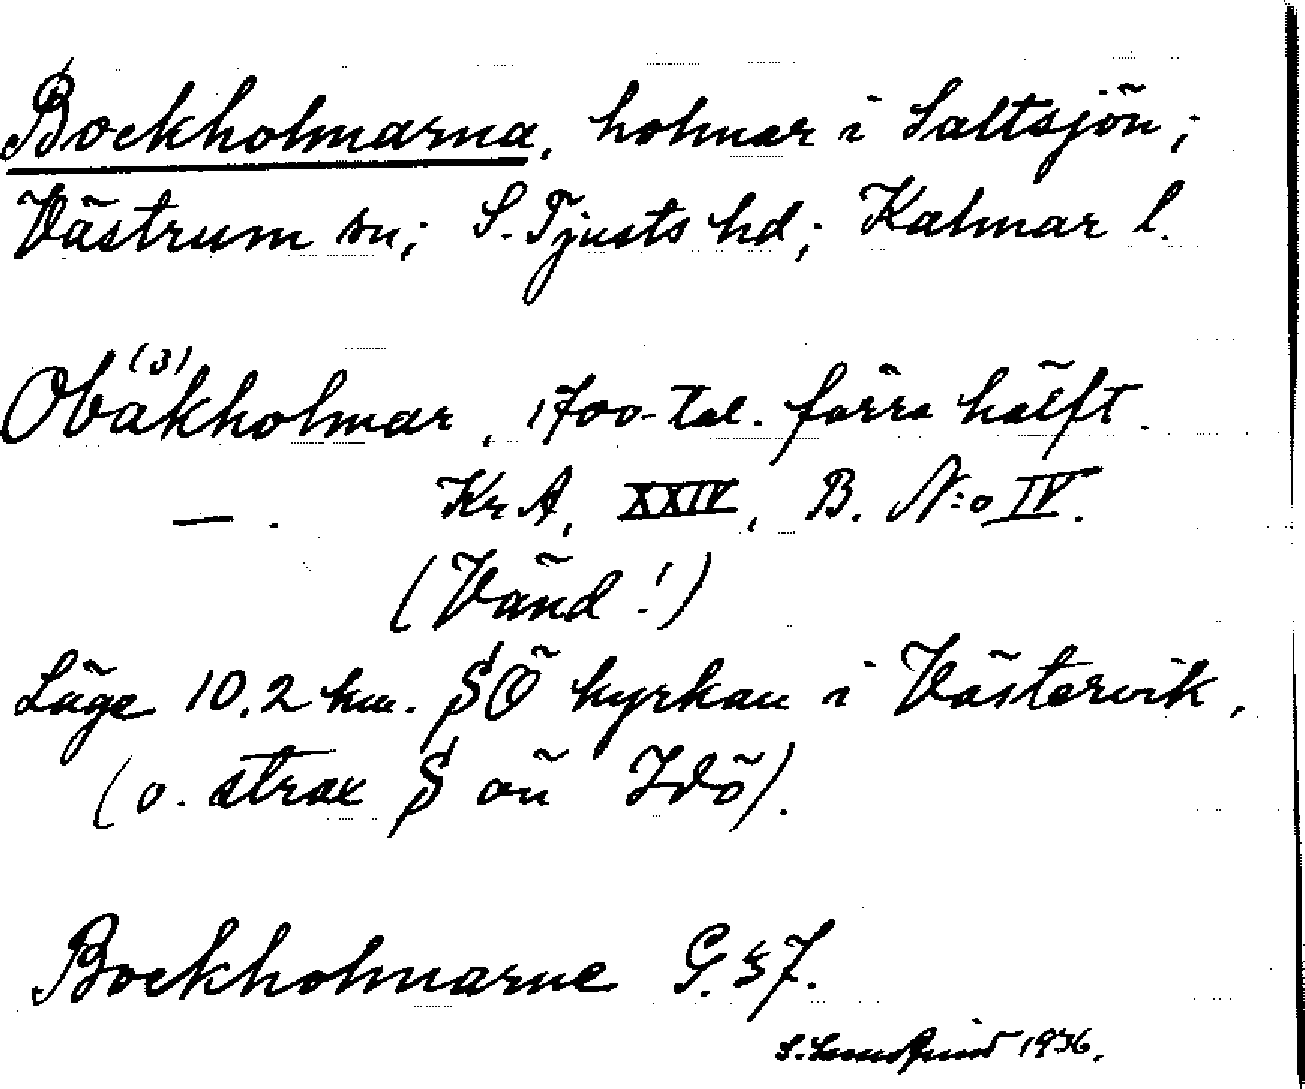 Bockholmarna, holmar i Saltsjön;
Västrum sn; S. Tjusts hd; Kalmar l.
(3)
Obåkholmar, 1700-tal. förra hälft.
— . Kr A, XXIV, B. N:o IV.
(Vänd!)
Läge 10.2 km. SÖ kyrkan i Västervik,
(o. strax S ön Idö).
Bockholmarne G. 37.
S. 1936.